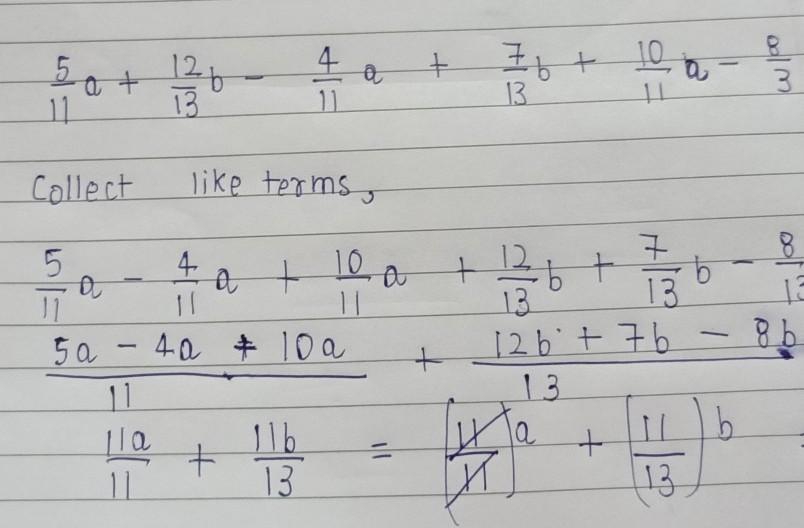 5/11 a + 12/13 b - 4/11 a + 7/13 b + 10/11 a - 8/3
Collect like terms,
5/11 a - 4/11 a + 10/11 a + 12/13 b + 7/13 b - 8/13
5a - 4a + 10a / 11 + 12b + 7b - 8b / 13
11a/11 + 11b/13 = (11/11) a + (11/13) b